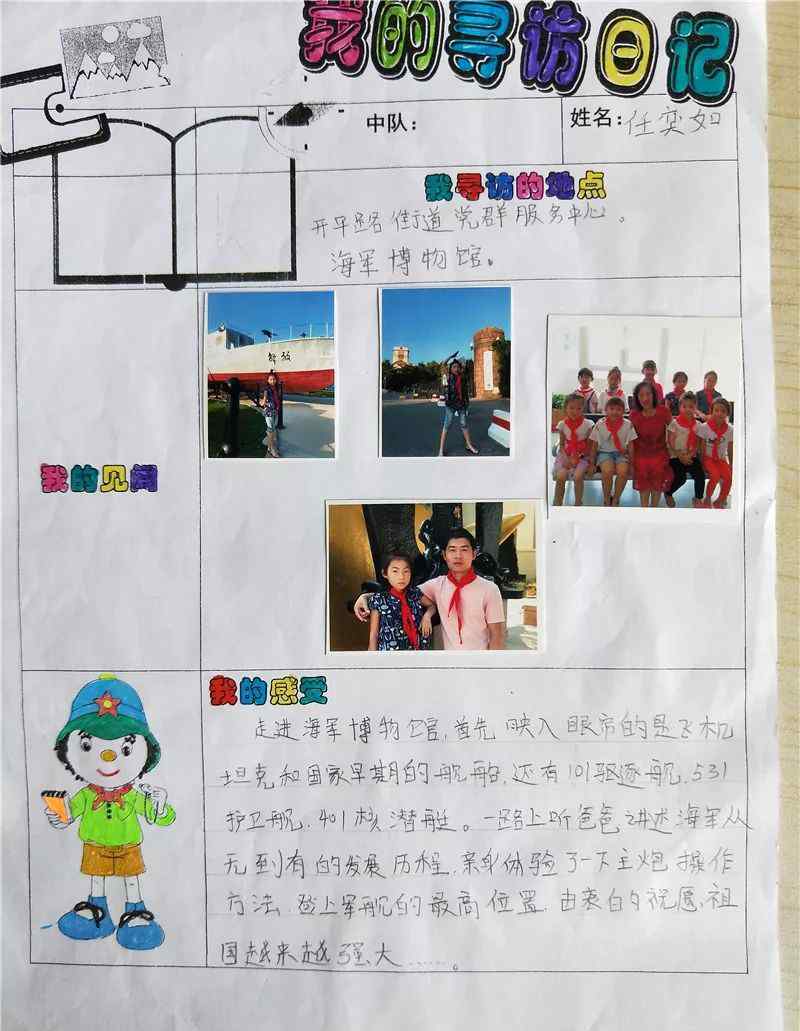 我的寻访日记
中队：
姓名：任奕如
我寻访的地点
开平路街道党群服务中心。
海军博物馆。
解放
我的见闻
我的感受
走进海军博物馆，首先映入眼帘的是飞机
坦克和国家早期的舰船，还有101驱逐舰，531
护卫舰，401核潜艇。一路上听爸爸讲述海军从
无到有的发展历程，亲身体验了一下主炮操作
方法，登上军舰的最高位置，由衷的祝愿，祖
国越来越强大……。